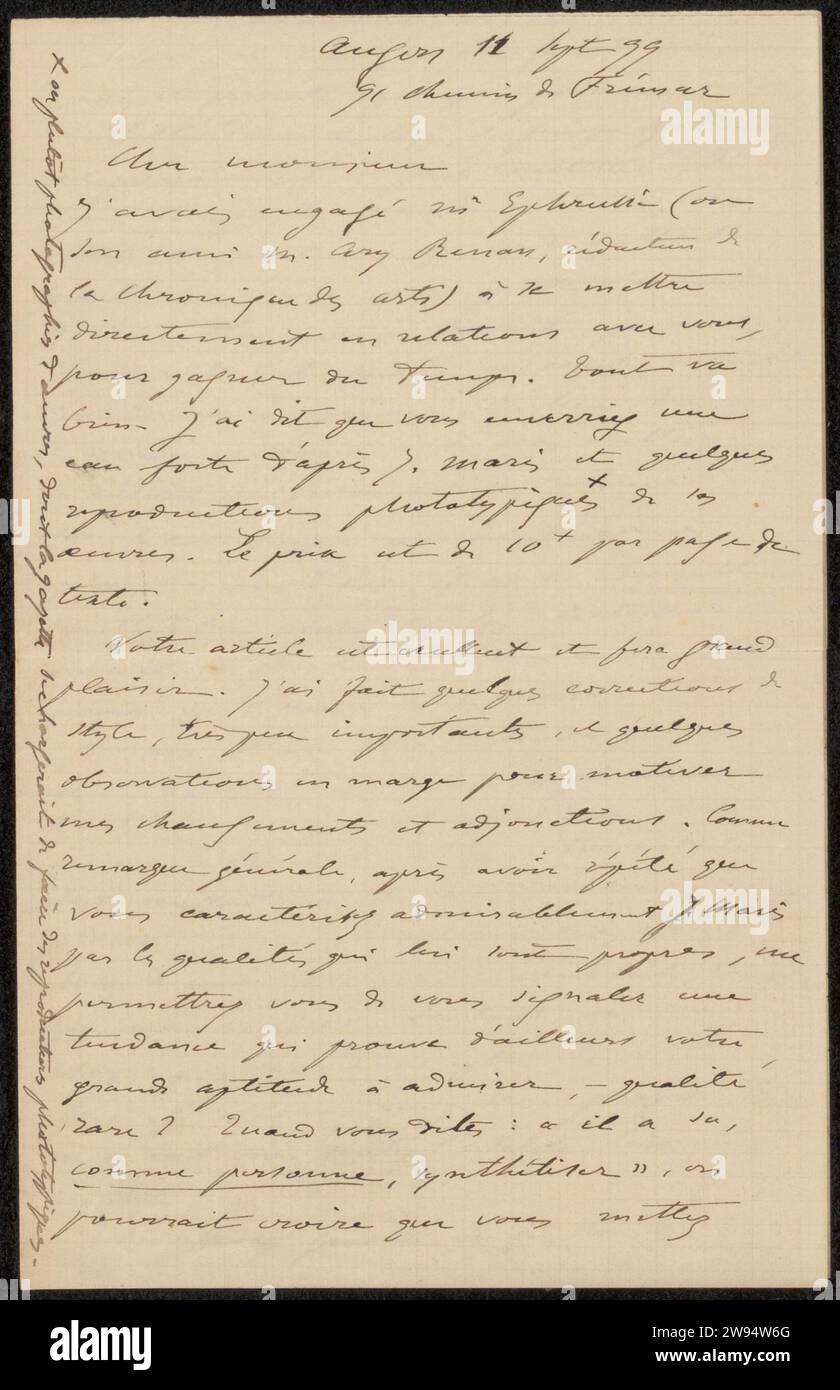 Angers 11 Sept 99
91 chemin de Frémur
Cher monsieur
J'avais engagé Mr Ephrussi (ou
son ami M. Ary Renan, rédacteur de
la Chronique des arts) à se mettre
directement en relations avec vous,
pour gagner du temps. Tout va
bien. J'ai dit que vous enverriez une
eau forte d'après J. Maris et quelques
reproductions phototypiques x de ses
œuvres. Le prix est de 10 par page de
texte.
Votre article est excellent et fera grand
plaisir. J'ai fait quelques corrections de
style, très peu importantes, et quelques
observations en marge pour motiver
mes changements et adjonctions. Comme
remarque générale, après avoir répété que
vous caractérisez admirablement J. Maris
par les qualités qui lui sont propres, me
permettrez vous de vous signaler une
tendance qui prouve d'ailleurs votre
grande aptitude à admirer, – qualité
rare ? Quand vous dites : « il a su,
comme personne, synthétiser », on
pourrait croire que vous mettez
x ou plutôt photographies d'œuvres, dont la gazette se chargerait de faire des reproductions phototypiques.
alamy
Image ID: 2W94W6G
www.alamy.com